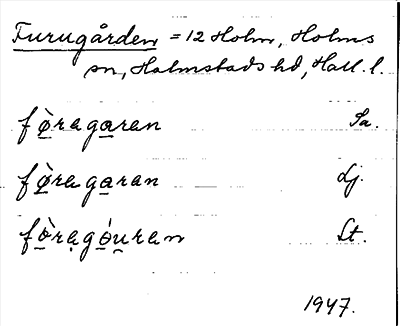 Furugården = 12 Holm, Holms
sn, Halmstads hd, Hall. l.
fø̠̀raga̠ran Sa.
fø̠̀raga̠ran Lj.
fò̠rạgó̠u̠ran St.
1947.